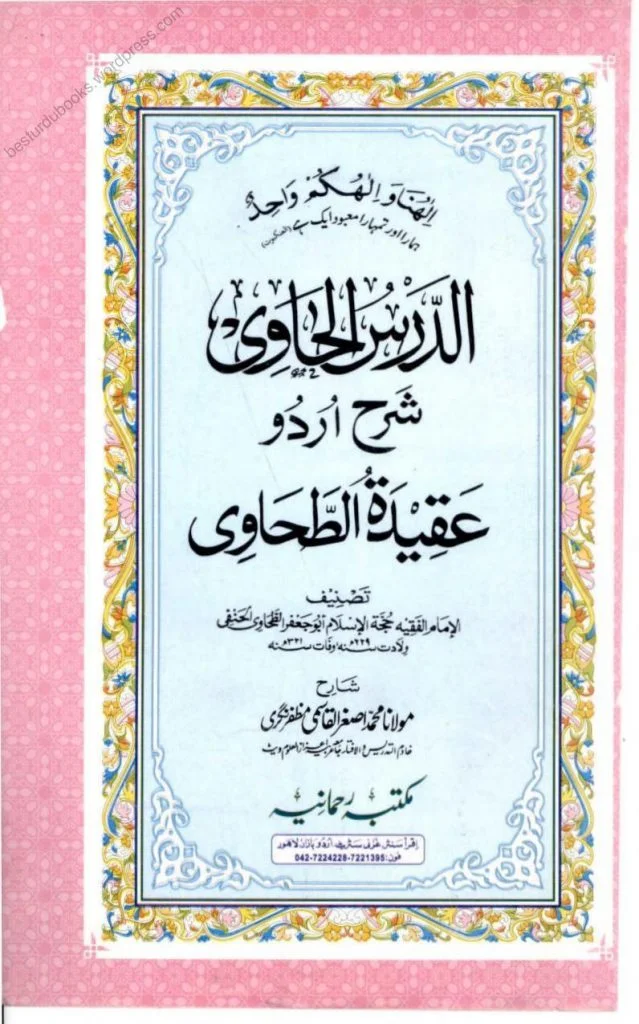 besturdubooks.wordpress.com
اِلٰهُنَا وَ اِلٰهُكُمْ وَاحِدٌ
ہمارا اور تمہارا معبود ایک ہے (العنکبوت)
الدَّرسُ الحَاوِی
شرح اُردُو
عَقِیْدَۃُ الطَّحَاوِی
تَصْنِیْف
الإمام الفقیه حُجّة الإسلام أبو جَعْفَر الطّحاوی الحنفی
ولادت سنه ۲۲۹ھ وفات سنه ۳۲۱ھ
شارح
مولانا محمد اصغر القاسمی مظفرنگری
خادم التدریس والافتاء
مکتبہ رحمانیہ
اِقرأ سنٹر غزنی سٹریٹ اُردو بازار لاهور
فون: 042-7224228-7221395